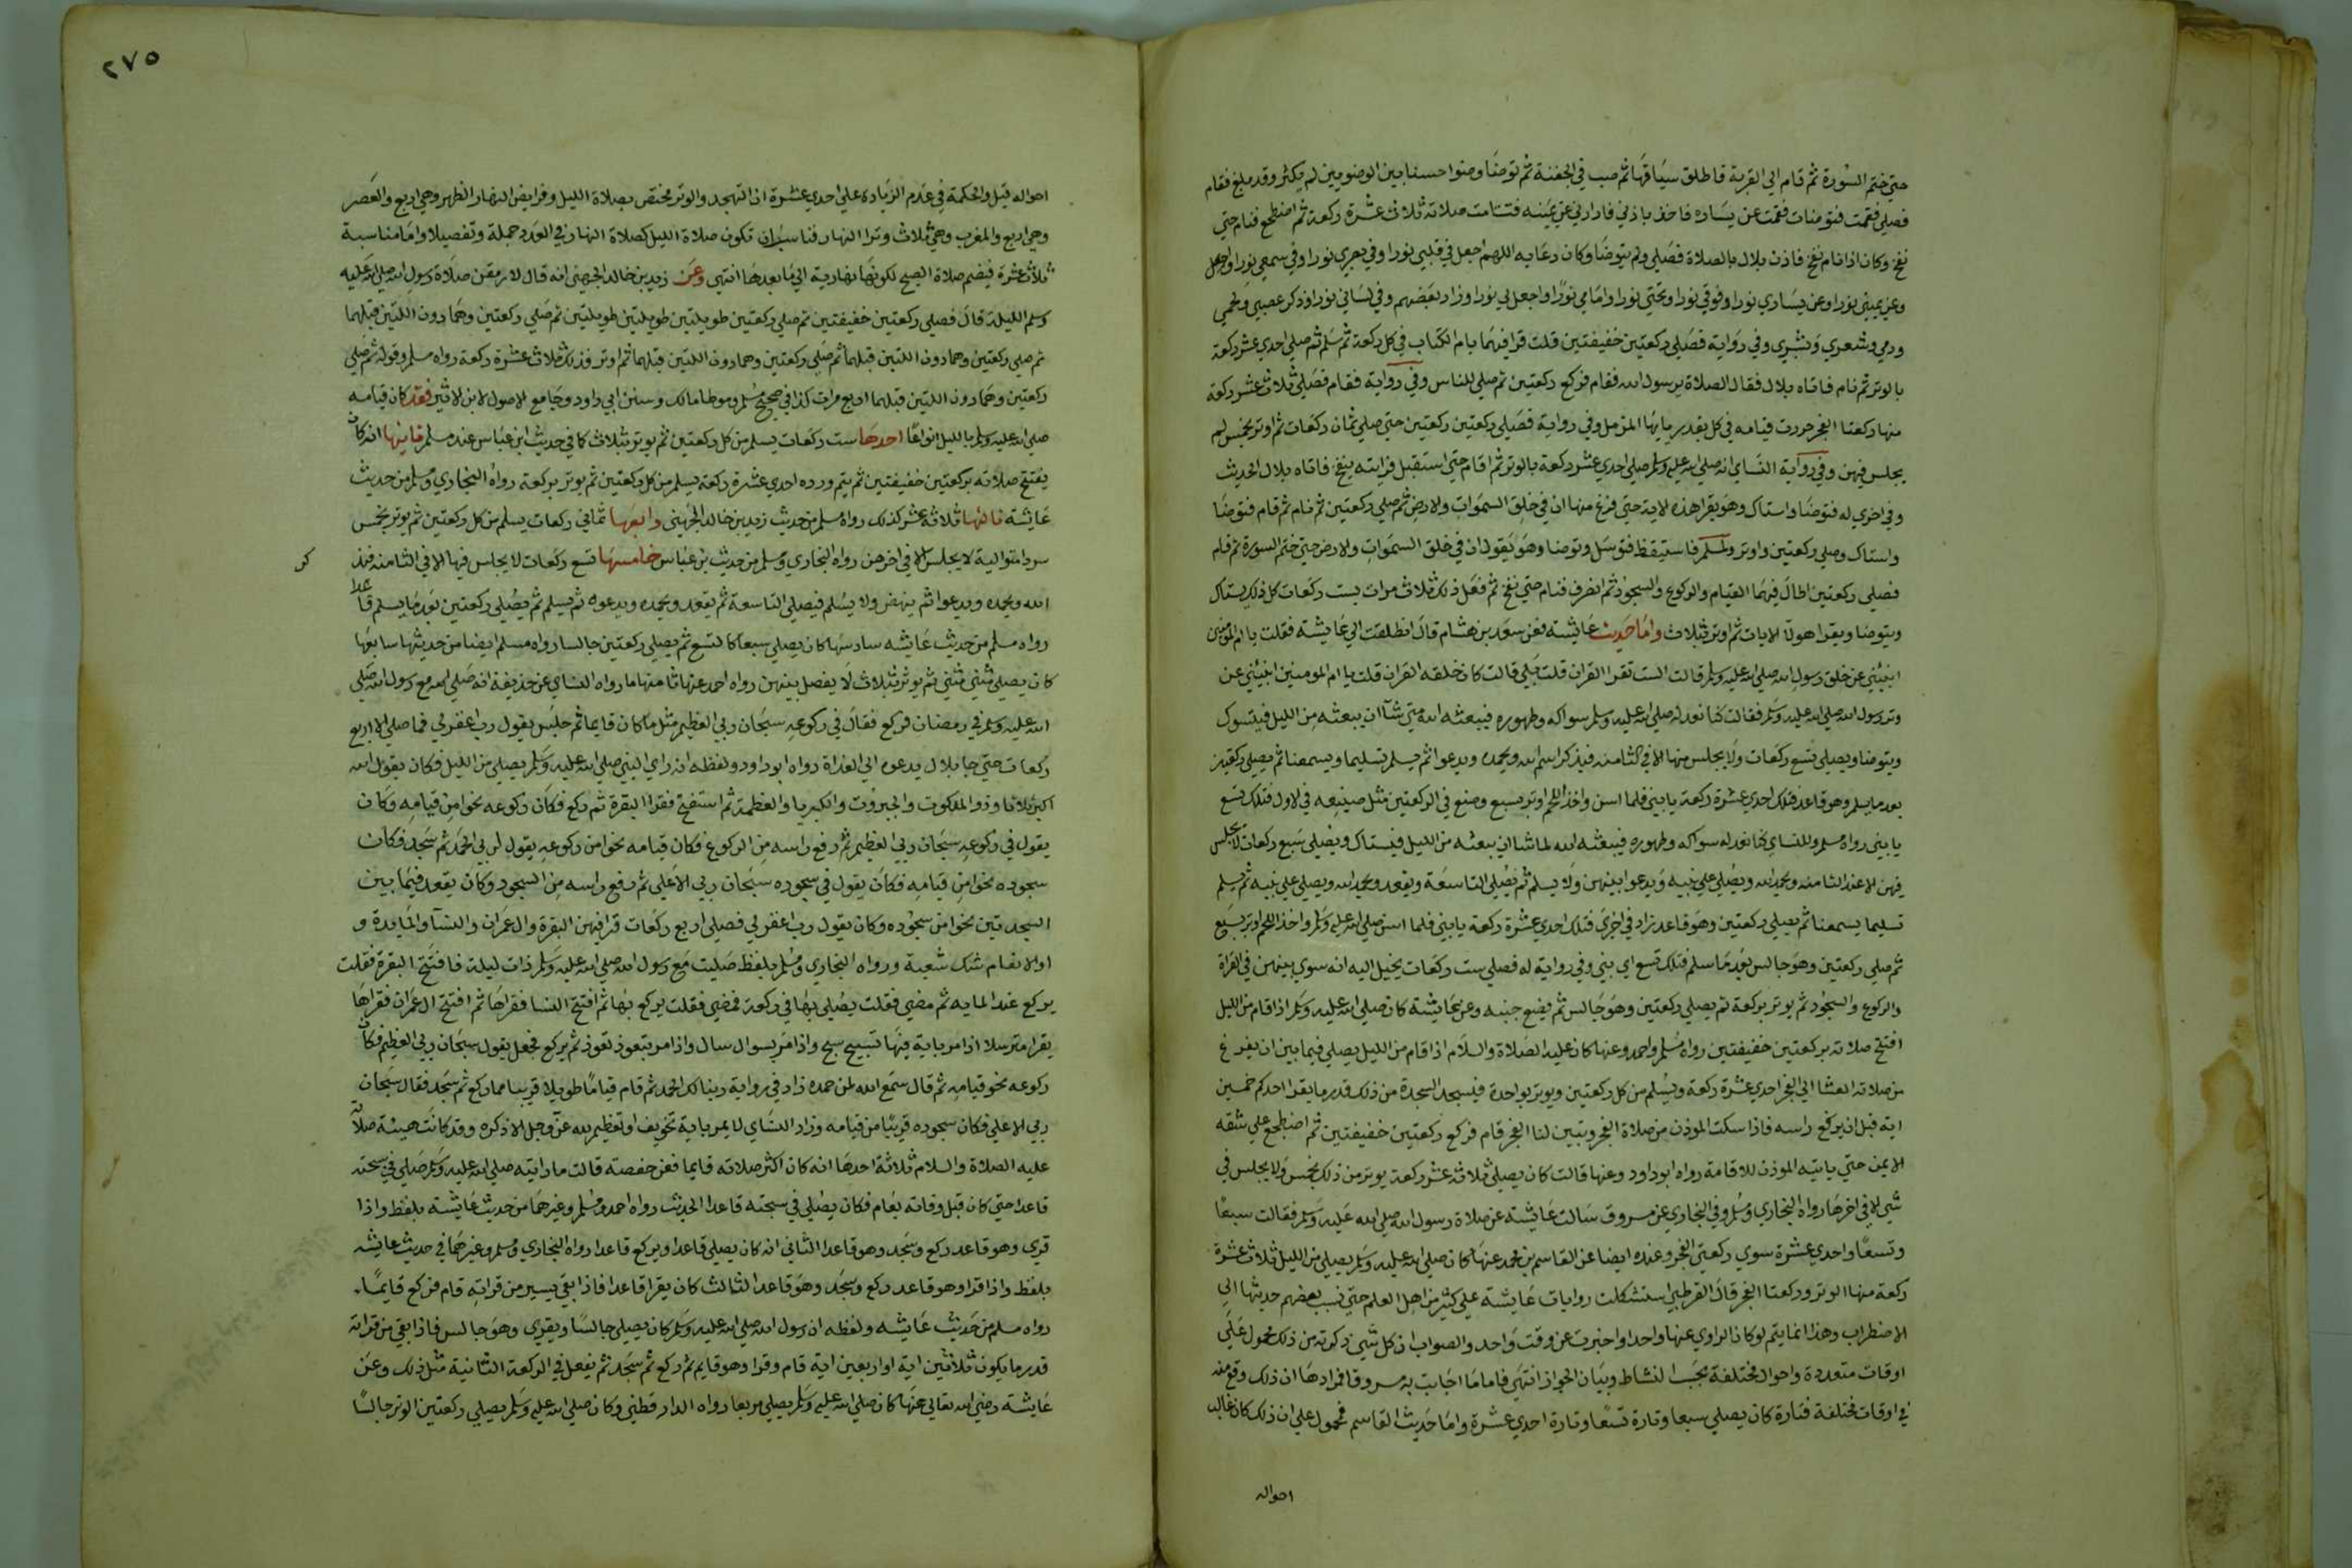 حتي ختم السورة ثم قام الي القربة فاطلق سياقها ثم صب في الجفنة ثم توضا وضوا حسنا بين الوضويين لم يكثر وقد بلغ فقام
فصلي فقمت فتوضات فقمت عن يساره فاخذ باذني فادارني عن يمينه فتتامت صلاته ثلاث عشرة ركعة ثم اضطجع فنام حتي
نفخ وكان اذا نام نفخ فاذن بلال بالصلاة فصلي ولم يتوضا وكان دعايه اللهم اجعل في قلبي نورا وفي بصري نورا وفي سمعي نورا واجعل
وعن يميني نورا وعن يساري نورا وفوقي نورا وتحتي نورا وامامي نورا واجعل لي نورا وزاد بعضهم وفي لساني نورا وذكر عصبي ولحمي
ودمي وشعري وبشري وفي رواية فصلي ركعتين خفيفتين قلت قرا فيهما بام الكتاب في كل ركعة ثم سلم ثم صلي احدي عشر ركعة
بالوتر ثم نام فاتاه بلال فقال الصلاة يرسول الله فقام فركع ركعتين ثم صلي للناس وفي رواية فقام فصلي ثلاث عشر ركعة
منها ركعتا الفجر حزرت قيامه في كل بقدر يايها المزمل وفي رواية فصلي ركعتين ركعتين حتي صلي ثمان ركعات ثم اوتر بخمس لم
يجلس فيهن وفي رواية النساي انه صلي الله عليه وسلم صلي احدي عشر ركعة بالوتر ثم اقام حتي استقبل فرايته ينفخ فاتاه بلال الحديث
وفي اخري له فتوضا واستاك وهو يقرا هذه الاية حتي فرغ منها ان في خلق السموات والارض ثم صلي ركعتين ثم نام ثم قام فتوضا
واستاك وصلي ركعتين واوتر ولمسلم فاستيقظ فتوسل وتوضا وهو يقول ان في خلق السموات والارض حتي ختم السورة ثم قام
فصلي ركعتين اطال فيهما القيام والركوع والسجود ثم انصرف فنام حتي نفخ ثم فعل ذلك ثلاث مرات بست ركعات كل ذلك يستاك
ويتوضا ويقرا هولا الايات ثم اوتر بثلاث واما حديث عايشه فعن سعد بن هشام قال انطلقت الي عايشة فقلت يا ام المومنين
انبئيني عن خلق رسول الله صلي الله عليه وسلم قالت الست تقرا القران قلت بلي قالت كان خلقه القران قلت يا ام المومنين انبئيني عن
وتر رسول الله صلي الله عليه وسلم فقالت كنا نعد له صلي الله عليه وسلم سواكه وطهوره فيبعثه الله متي شا ان يبعثه من الليل فيتسوك
ويتوضا ويصلي تسع ركعات ولا يجلس منها الا في الثامنه فيذكر اسم الله ويحمده ويدعوا ثم يسلم تسليما ويسمعنا ثم يصلي ركعتين
بعد ما يسلم وهو قاعد فتلك احدي عشرة ركعة يا بني فلما اسن واخذ اللحم اوتر بسبع وصنع في الركعتين مثل صنيعه في الاول فتلك تسع
يا بني رواه مسلم وللنساي كنا نعد له سواكه وطهوره فيبعثه الله لما شا ان يبعثه من الليل فيستاك ويصلي سبع ركعات لا يجلس
فيهن الا عند الثامنه ويحمد الله ويصلي علي نبيه ويدعوا بينهن ولا يسلم ثم يصلي التاسعة ويقعد ويحمد الله ويصلي علي نبيه ثم يسلم
تسليما يسمعنا ثم يصلي ركعتين وهو قاعد زاد في اخري فتلك احدي عشرة ركعة يا بني فلما اسن صلي الله عليه وسلم واخذ اللحم اوتر بسبع
ثم صلي ركعتين وهو جالس بعد ما سلم فتلك تسع اي بني وفي رواية له فصلي ست ركعات يخيل اليه انه سوي بينهن في القراة
والركوع والسجود ثم يوتر بركعة ثم يصلي ركعتين وهو جالس ثم يضع جنبه وعن عايشة كان صلي الله عليه وسلم اذا قام من الليل
افتتح صلاته بركعتين خفيفتين رواه مسلم واحمد وعنها كان عليه الصلاة والسلام اذا قام من الليل يصلي فيما بين ان يفرغ
من صلاته العشا الي الفجر احدي عشرة ركعة ويسلم من كل ركعتين ويوتر بواحدة فيسجد السجدة من ذلك قدر ما يقرا احدكم خمسين
اية قبل ان يرفع راسه فاذا سكت الموذن من صلاة الفجر وتبين لنا الفجر قام فركع ركعتين خفيفتين ثم اضطجع علي شقه
الايمن حتي ياتيه الموذن للاقامة رواه ابوداود وعنها قالت كان يصلي ثلاثة عشر ركعة يوتر من ذلك بخمس ولا يجلس في
شي الا في اخرها رواه البخاري ومسلم وفي البخاري عن مسروق سالت عايشة عن صلاة رسول الله صلي الله عليه وسلم فقالت سبعا
وتسعا واحدي عشرة سوي ركعتي الفجر وعنده ايضا عن القاسم بن محمد عنها كان صلي الله عليه وسلم يصلي من الليل ثلاث عشرة
ركعة منها الوتر وركعتا الفجر قال القرطبي استشكلت روايات عايشة علي كثير من اهل العلم حتي نسب بعضهم حديثها الي
الاضطراب وهذا انما يتم لو كان الراوي عنها واحدا واخبرت عن وقت واحد والصواب ان كل شي ذكرته من ذلك محمول علي
اوقات متعددة واحوال مختلفة بحسب النشاط وبيان الجواز انتهي فاما ما اجابت به مسروقا فمرادها ان ذلك وقع منه
في اوقات مختلفة فتارة كان يصلي سبعا وتارة تسعا وتارة احدي عشرة واما حديث القاسم فمحمول علي ان ذلك كان غالب
احواله
٢٧٥
احواله قيل والحكمة في عدم الزيادة علي احدي عشرة ان التهجد والوتر مختص بصلاة الليل وفرايض النهار الظهر وهي اربع والعصر
وهي اربع والمغرب وهي ثلاث وترا النهار فناسب ان تكون صلاة الليل كصلاة النهار في العدد جملة وتفصيلا واما مناسبة
ثلاث عشرة فبضم صلاة الصبح لكونها نهارية الي ما بعدها انتهي وعن زيد بن خالد الجهني انه قال لارمقن صلاة رسول الله صلي الله عليه
وسلم الليلة قال فصلي ركعتين خفيفتين ثم صلي ركعتين طويلتين طويلتين طويلتين ثم صلي ركعتين وهما دون اللتين قبلهما
ثم صلي ركعتين وهما دون اللتين قبلهما ثم صلي ركعتين وهما دون اللتين قبلهما ثم اوتر فذلك ثلاث عشرة ركعة رواه مسلم وقوله ثم صلي
ركعتين وهما دون اللتين قبلهما اربع مرات كذا في صحيح مسلم وموطا مالك وسنن ابي داود وجامع الاصول لابن الاثير فقد كان قيامه
صلي الله عليه وسلم بالليل انواعا احدها ست ركعات يسلم من كل ركعتين ثم يوتر بثلاث كما في حديث ابن عباس عند مسلم ثانيها انه كان
يفتتح صلاته بركعتين خفيفتين ثم يتم ورده احدي عشرة ركعة يسلم من كل ركعتين ثم يوتر بركعة رواه البخاري ومسلم من حديث
عايشة ثالثها ثلاثة عشر كذلك رواه مسلم من حديث زيد بن خالد الجهني رابعها ثماني ركعات يسلم من كل ركعتين ثم يوتر بخمس
سردا متوالية لا يجلس الا في اخرهن رواه البخاري ومسلم من حديث بن عباس خامسها تسع ركعات لا يجلس فيها الا في الثامنه فيذكر
الله ويحمده ويدعوا ثم ينهض ولا يسلم فيصلي التاسعة ثم يقعد ويحمده ويدعوه ثم يسلم ثم يصلي ركعتين بعد ما يسلم قاعدا
رواه مسلم من حديث عايشه سادسها كان يصلي سبعا كالتسع ثم يصلي ركعتين جالسا رواه مسلم ايضا من حديثها سابعها
كان يصلي مثني مثني ثم يوتر بثلاث لا يفصل بينهن رواه احمد عنها ثامنها ما رواه النساي عن حذيفة انه صلي الله مع رسول الله صلي
الله عليه وسلم في رمضان فركع فقال في ركوعه سبحان ربي العظيم مثل ما كان قايما ثم جلس يقول رب اغفر لي فما صلي الا اربع
ركعات حتي جا بلال يدعوه الي الغداة رواه ابوداود ولفظه انه راي النبي صلي الله عليه وسلم يصلي من الليل فكان يقول الله
اكبر ثلاثا وذو الملكوت والجبروت والكبريا والعظمة ثم استفتح فقرا البقرة ثم ركع فكان ركوعه نحوا من قيامه وكان
يقول في ركوعه سبحان ربي العظيم ثم رفع راسه من الركوع فكان قيامه نحوا من ركوعه يقول لربي الحمد ثم سجد فكان
سجوده نحوا من قيامه فكان يقول في سجوده سبحان ربي الاعلي ثم رفع راسه من السجود وكان يقعد فيما بين
السجدتين نحوا من سجوده وكان يقول رب اغفر لي فصلي اربع ركعات قرا فيهن البقرة وال عمران والنسا والمايدة و
او الانعام شك شعبة ورواه البخاري ومسلم بلفظ صليت مع رسول الله صلي الله عليه وسلم ذات ليلة فافتتح البقرة فقلت
يركع عند المايه ثم مضي فقلت يصلي بها في ركعة فمضي فقلت يركع بها ثم افتتح النسا فقراها ثم افتتح ال عمران فقراها
يقرا مترسلا اذا مر باية فيها تسبيح سبح واذا مر بسوال سال واذا مر بتعوذ تعوذ ثم يركع فجعل يقول سبحان ربي العظيم فكان
ركوعه نحو قيامه ثم قال سمع الله لمن حمده زاد في رواية ربنا لك الحمد ثم قام قياما طويلا قريبا مما ركع ثم سجد فقال سبحان
ربي الاعلي فكان سجوده قريبا من قيامه وزاد النساي لا يمر باية تخويف او تعظيم لله عز وجل الا ذكره وقد كانت هيئة صلاته
عليه الصلاة والسلام ثلاثة احدها انه كان اكثر صلاته قايما فعن حفصة قالت ما رايته صلي الله عليه وسلم صلي في سبحته
قاعدا حتي كان قبل وفاته بعام فكان يصلي في سبحته قاعدا الحديث رواه احمد ومسلم وغيرهما من حديث عايشة بلفظ واذا
قري وهو قاعد ركع وسجد وهو قاعدا الثاني انه كان يصلي قاعدا ويركع قاعدا رواه البخاري ومسلم وغيرهما في حديث عايشه
بلفظ واذا قرا وهو قاعد ركع وسجد وهو قاعدا الثالث كان يقرا قاعدا فاذا بقي يسير من قراته قام فركع قايما
رواه مسلم من حديث عايشه ولفظه ان رسول الله صلي الله عليه وسلم كان يصلي جالسا ويقري وهو جالس فاذا بقي من قراته
قدر ما يكون ثلاثين اية او اربعين اية قام وقرا وهو قايم ثم ركع ثم سجد ثم يفعل في الركعة الثانية مثل ذلك وعن
عايشة رضي الله تعالي عنها كان صلي الله عليه وسلم يصلي مربعا رواه الدار قطني وكان صلي الله عليه وسلم يصلي ركعتين الوتر جالسا